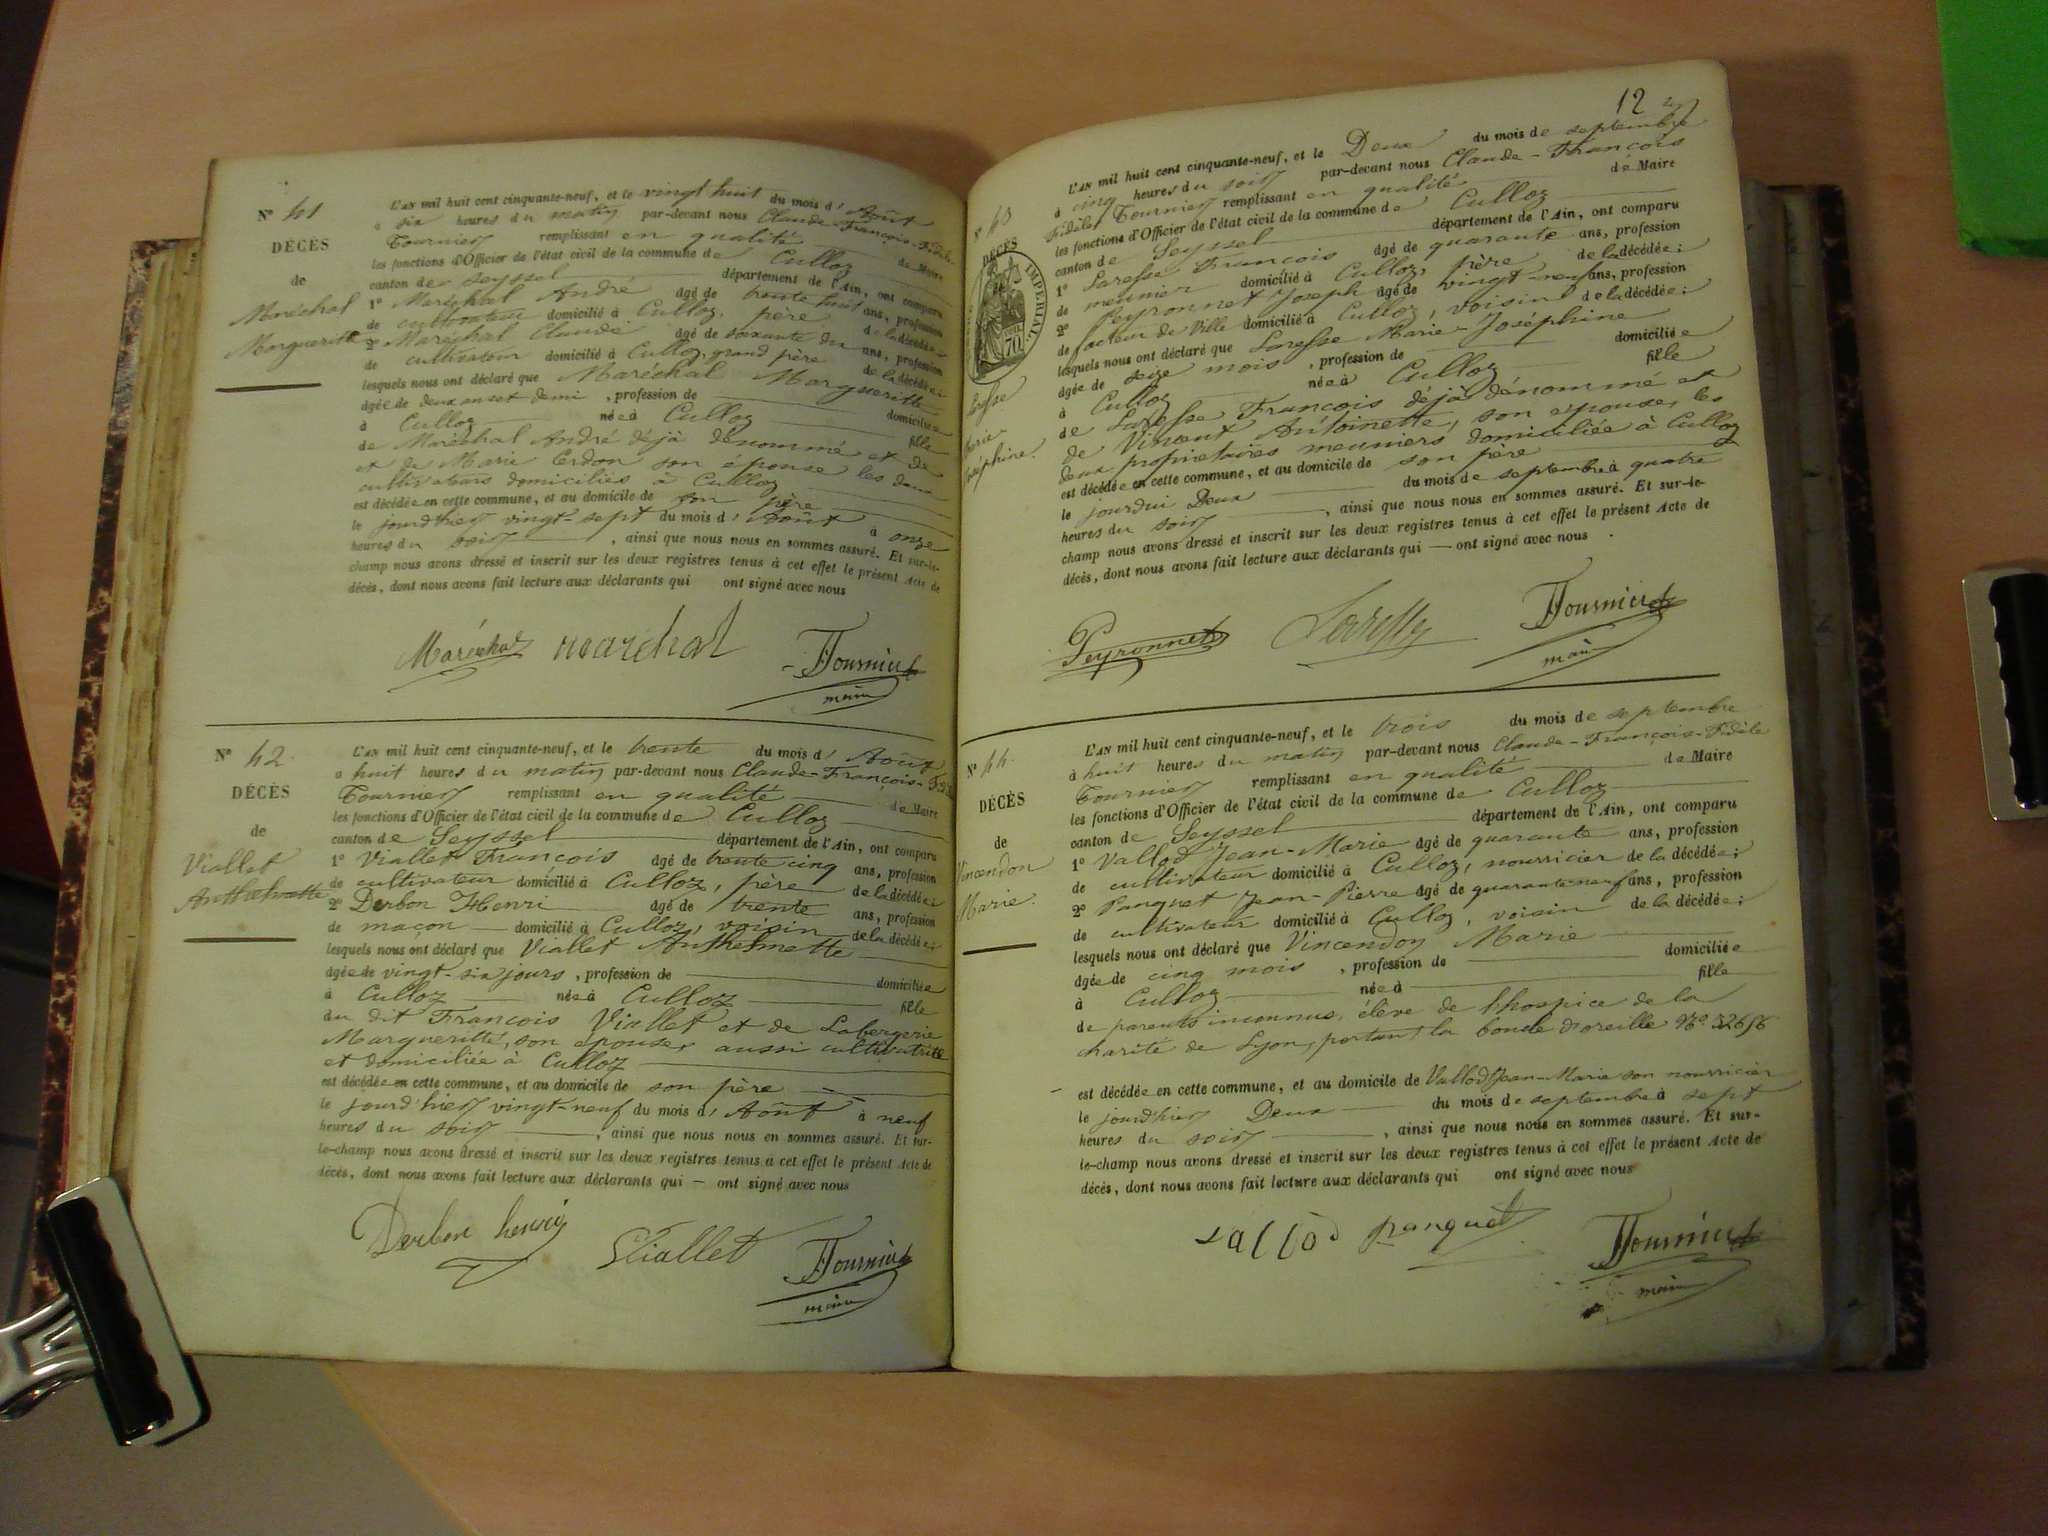 N° 41
DÉCÈS
de
Maréchal
Marguerite
L'AN mil huit cent cinquante-neuf, et le vingt huit du mois d'Août
à six heures du matin par-devant nous Claude-François-Fidèle
Tournier remplissant en qualité de Maire
les fonctions d'Officier de l'état civil de la commune de Culloz
canton de Seyssel département de l'Ain, ont comparu
1° Maréchal André âgé de trente huit ans, profession
de cultivateur domicilié à Culloz, père de la décédée;
2° Maréchal Claude âgé de soixante dix ans, profession
de cultivateur domicilié à Culloz, grand père de la décédée;
lesquels nous ont déclaré que Maréchal Marguerite
âgée de deux ans et demi, profession de domiciliée
à Culloz née à Culloz fille
de Maréchal André déjà dénommé et de
et de Marie Cerdon son épouse les deux
cultivateurs domiciliés à Culloz
est décédée en cette commune, et au domicile de son père
le jourd'hier vingt-sept du mois d'Août à onze
heures du soir, ainsi que nous nous en sommes assuré. Et sur-le-
champ nous avons dressé et inscrit sur les deux registres tenus à cet effet le présent Acte de
décès, dont nous avons fait lecture aux déclarants qui ont signé avec nous
Maréchal maréchal Tournier
maire
N° 42.
DÉCÈS
de
Viallet
Anthelmette
L'AN mil huit cent cinquante-neuf, et le trente du mois d'Août
à huit heures du matin par-devant nous Claude-François-
Tournier remplissant en qualité de Maire
les fonctions d'Officier de l'état civil de la commune de Culloz
canton de Seyssel département de l'Ain, ont comparu
1° Viallet François âgé de trente cinq ans, profession
de cultivateur domicilié à Culloz, père de la décédée;
2° Derbon Henri âgé de trente ans, profession
de maçon domicilié à Culloz, voisin de la décédée;
lesquels nous ont déclaré que Viallet Anthelmette
âgée de vingt-six jours, profession de domiciliée
à Culloz née à Culloz fille
du dit François Viallet et de Labergerie
Margueritte, son épouse, aussi cultivatrice
et domiciliée à Culloz
est décédée en cette commune, et au domicile de son père
le jourd'hier vingt-neuf du mois d'Août à neuf
heures du soir, ainsi que nous nous en sommes assuré. Et sur-
le-champ nous avons dressé et inscrit sur les deux registres tenus à cet effet le présent Acte de
décès, dont nous avons fait lecture aux déclarants qui — ont signé avec nous
Derbon henri Viallet Tournier
maire
12
N° 43
DÉCÈS
IMPÉRIAL
70
Laresse
Marie
Joséphine.
L'AN mil huit cent cinquante-neuf, et le Deux du mois de septembre
à cinq heures du soir par-devant nous Claude-François
Fidèle Tournier remplissant en qualité de Maire
les fonctions d'Officier de l'état civil de la commune de Culloz
canton de Seyssel département de l'Ain, ont comparu
1° Laresse François âgé de quarante ans, profession
de meunier domicilié à Culloz, père de la décédée;
2° Peyronnet Joseph âgé de vingt-neuf ans, profession
de facteur de Ville domicilié à Culloz, voisin de la décédée;
lesquels nous ont déclaré que Laresse Marie-Joséphine
âgée de seize mois, profession de domiciliée
à Culloz née à Culloz fille
de Laresse François déjà dénommé et
de Vincent Antoinette, son épouse, les
deux propriétaires meuniers domiciliée à Culloz
est décédée en cette commune, et au domicile de son père
le jourdui Deux du mois de septembre à quatre
heures du soir, ainsi que nous nous en sommes assuré. Et sur-le-
champ nous avons dressé et inscrit sur les deux registres tenus à cet effet le présent Acte de
décès, dont nous avons fait lecture aux déclarants qui — ont signé avec nous.
Peyronnet Tournier
maire
N° 44.
DÉCÈS
de
Vincendon
Marie.
L'AN mil huit cent cinquante-neuf, et le trois du mois de septembre
à huit heures du matin par-devant nous Claude-François-Fidèle
Tournier remplissant en qualité de Maire
les fonctions d'Officier de l'état civil de la commune de Culloz
canton de Seyssel département de l'Ain, ont comparu
1° Vallod Jean-Marie âgé de quarante ans, profession
de cultivateur domicilié à Culloz, nourricier de la décédée;
2° Panguet Jean-Pierre âgé de quarante neuf ans, profession
de cultivateur domicilié à Culloz, voisin de la décédée;
lesquels nous ont déclaré que Vincendon Marie
âgée de cinq mois, profession de domiciliée
à Culloz née à fille
de parents inconnus, élève de l'hospice de la
charité de Lyon, portant la boucle d'oreille N°
est décédée en cette commune, et au domicile de Vallod Jean-Marie son nourricier
le jourd'hier Deux du mois de septembre à sept
heures du soir, ainsi que nous nous en sommes assuré. Et sur-
le-champ nous avons dressé et inscrit sur les deux registres tenus à cet effet le présent Acte de
décès, dont nous avons fait lecture aux déclarants qui ont signé avec nous
vallod panguet Tournier
maire